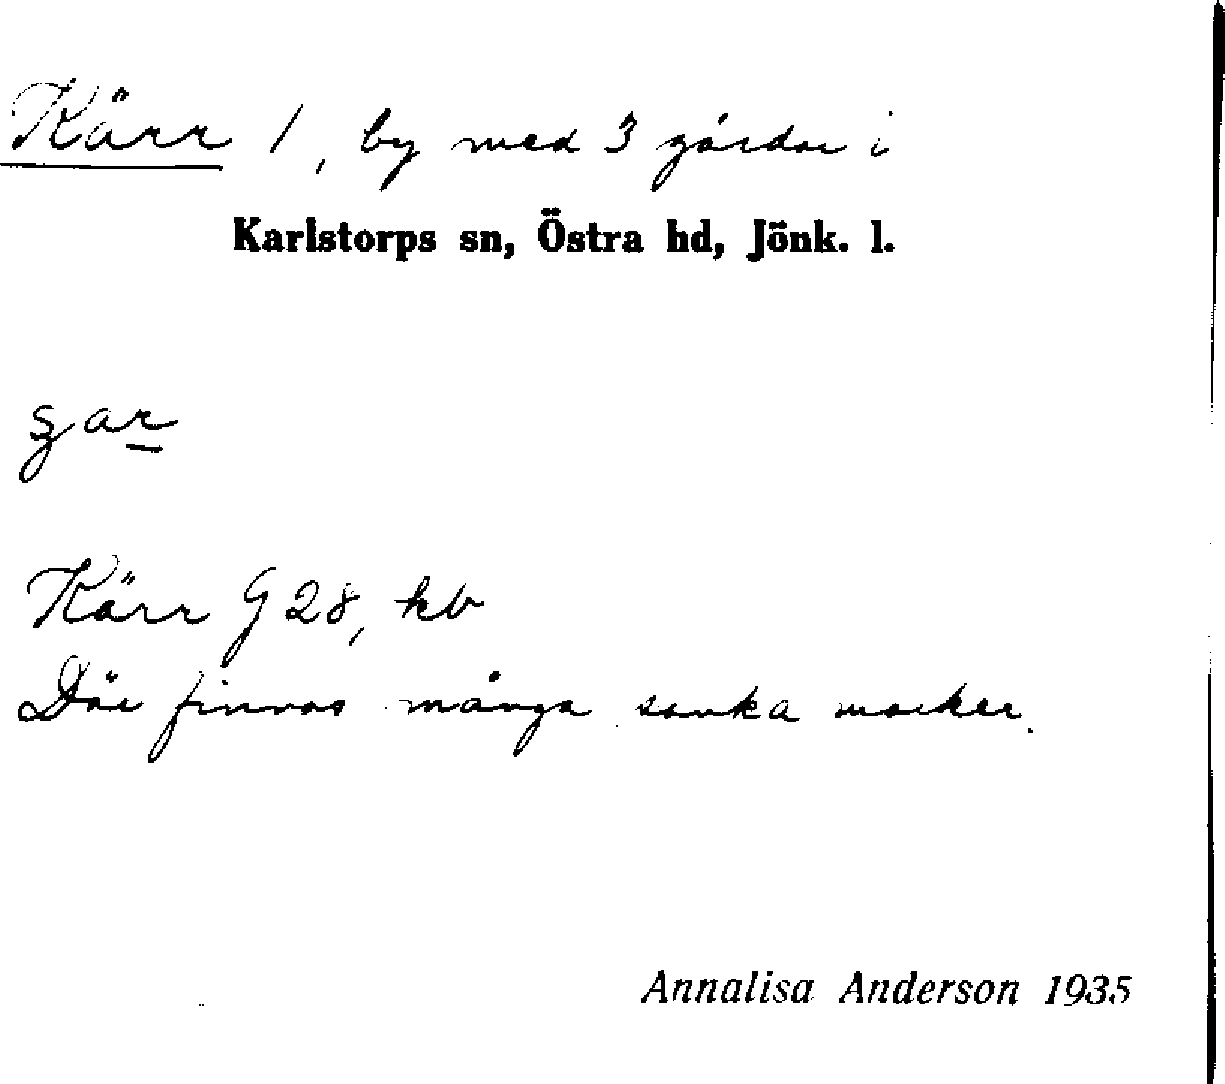 Kärr 1, by med 3 gårdar i
Karlstorps sn, Östra hd, Jönk. l.
Kärr G 28, kb
Där finnas många sanka marker.
Annalisa Anderson 1935